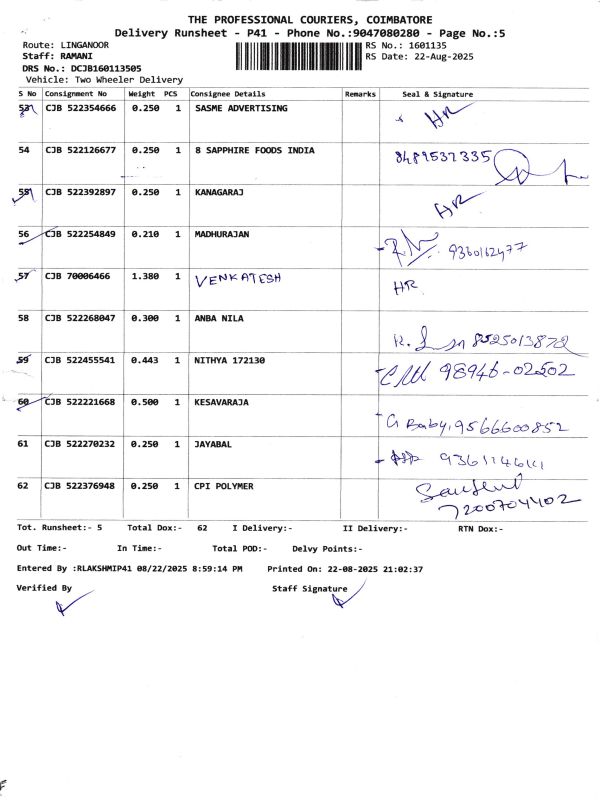 THE PROFESSIONAL COURIERS, COIMBATORE
Delivery Runsheet - P41 - Phone No.:9047080280 - Page No.:5
Route: LINGANOOR RS No.: 1601135
Staff: RAMANI RS Date: 22-Aug-2025
DRS No.: DCJB160113505
Vehicle: Two Wheeler Delivery
S No Consignment No Weight PCS Consignee Details Remarks Seal & Signature
53 CJB 522354666 0.250 1 SASME ADVERTISING HR
54 CJB 522126677 0.250 1 8 SAPPHIRE FOODS INDIA 8489532335
55 CJB 522392897 0.250 1 KANAGARAJ HR
56 CJB 522254849 0.210 1 MADHURAJAN 9360162477
57 CJB 70006466 1.380 1 VENKATESH HR
58 CJB 522268047 0.300 1 ANBA NILA 8525013872
59 CJB 522455541 0.443 1 NITHYA 172130 98946-02502
60 CJB 522221668 0.500 1 KESAVARAJA G Baby, 9566600852
61 CJB 522270232 0.250 1 JAYABAL
62 CJB 522376948 0.250 1 CPI POLYMER
7200704402
Tot. Runsheet:- 5 Total Dox:- 62 I Delivery:- II Delivery:- RTN Dox:-
Out Time:- In Time:- Total POD:- Delvy Points:-
Entered By :RLAKSHMIP41 08/22/2025 8:59:14 PM Printed On: 22-08-2025 21:02:37
Verified By Staff Signature